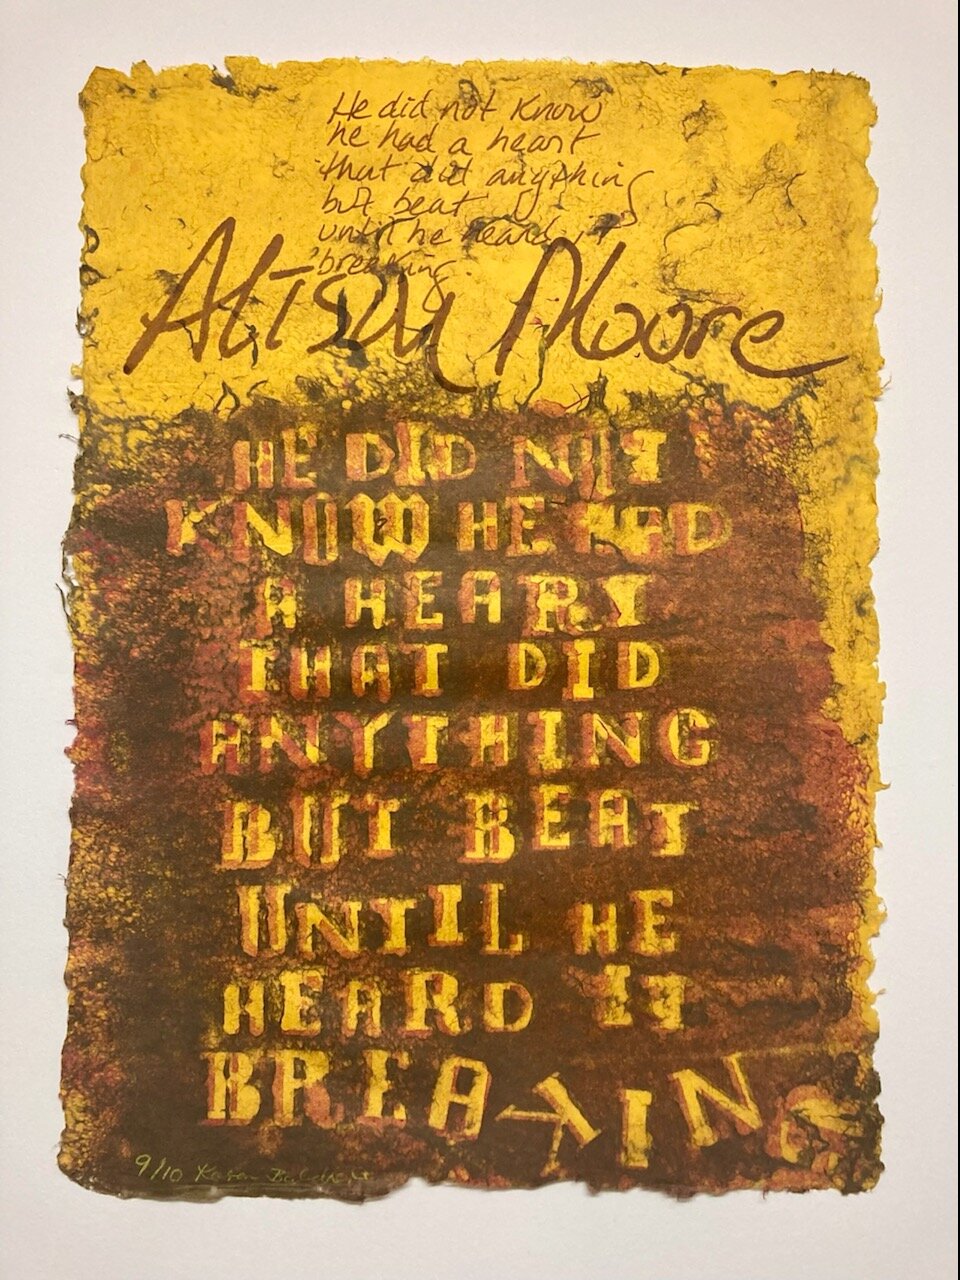 He did not know
he had a heart
that did anything
but beat
until he heard it
breaking.
Alison Moore
HE DID NOT
KNOW HE HAD
A HEART
THAT DID
ANYTHING
BUT BEAT
UNTIL HE
HEARD IT
BREAKING
9/10 Karen